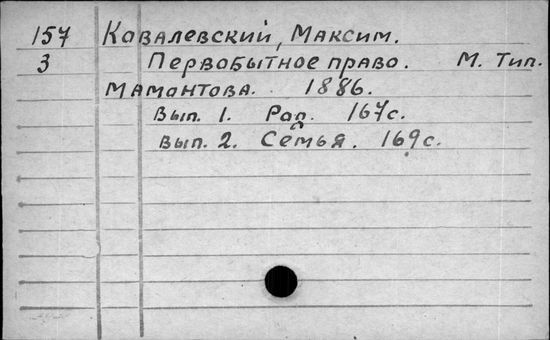 157 Ковалевский, Максим.
3 Первобытное право. М. Тип.
Мамонтова. 1886.
Вып. 1. Род. 167с.
Вып. 2. Семья. 169с.